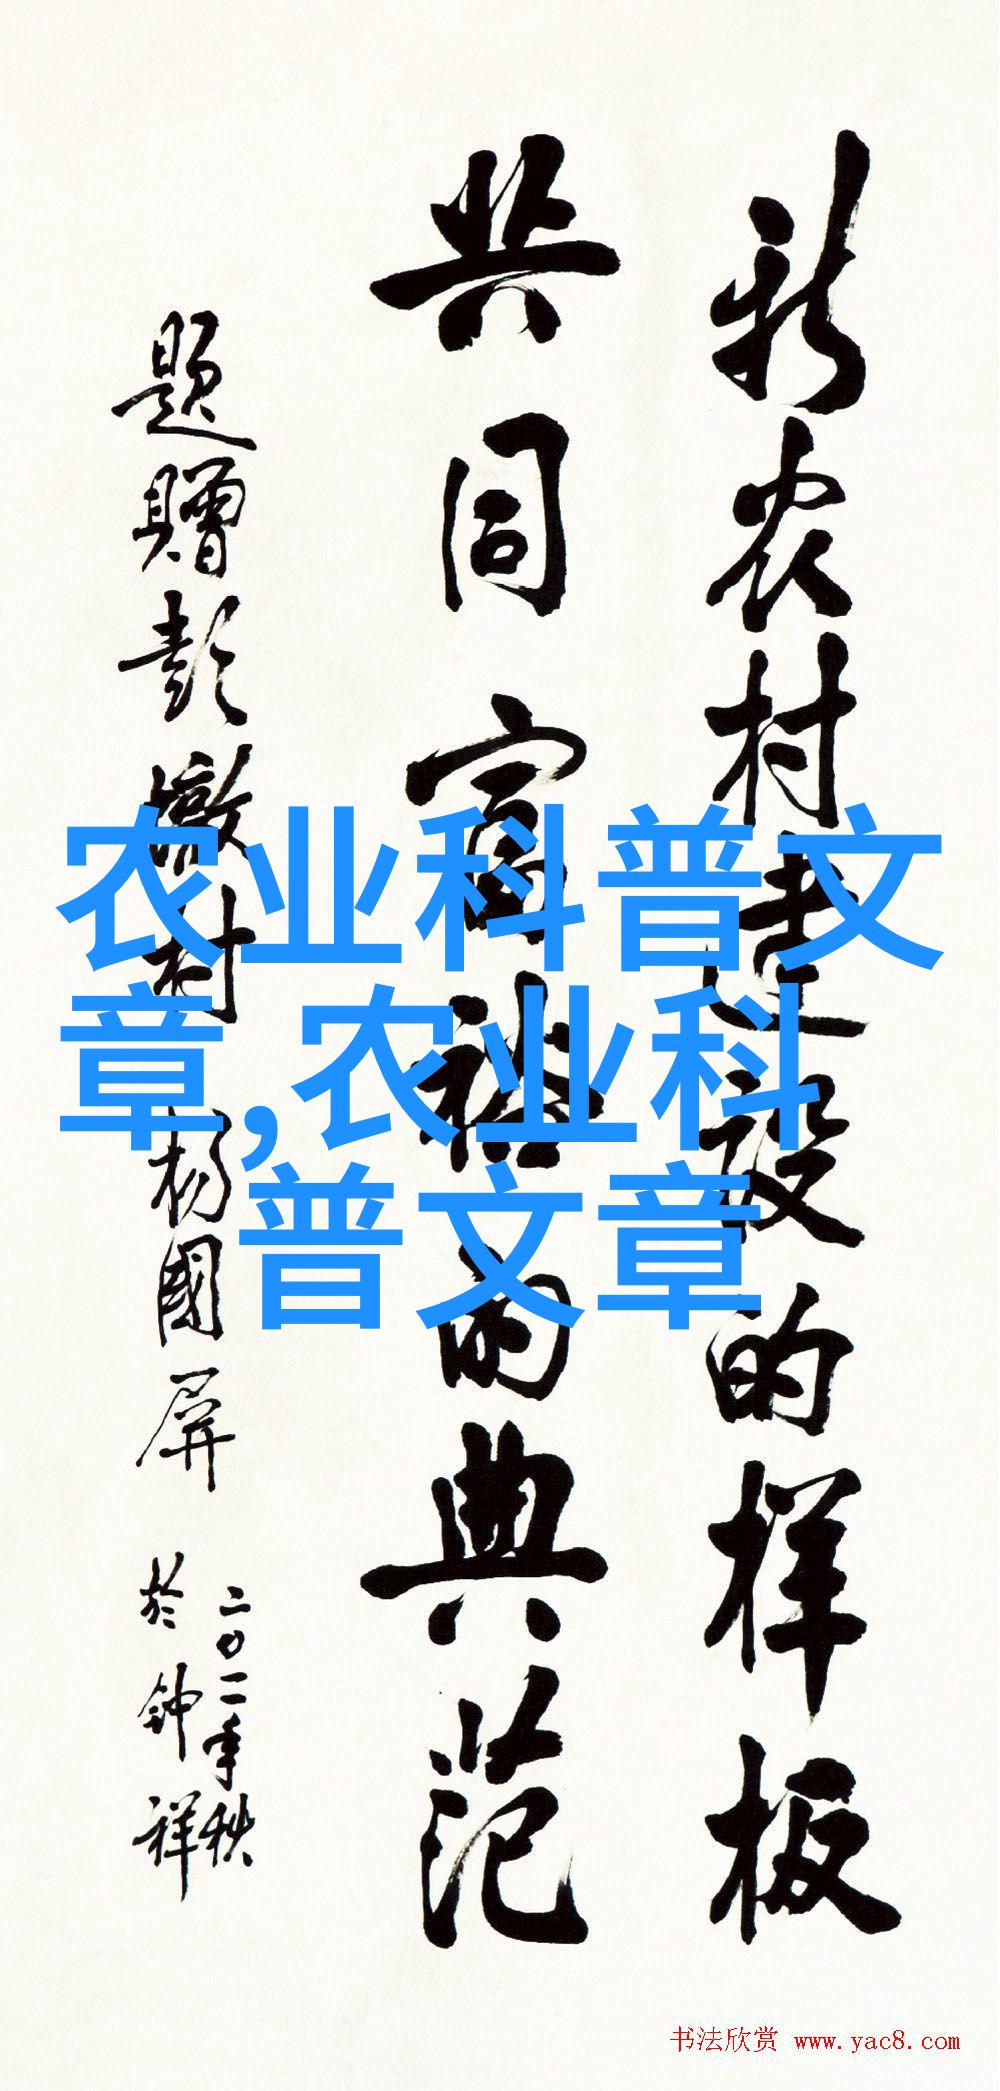 新农村建设的样板
共同富裕的典范
题赠彭墩村 杨国屏
二〇一一年秋
於钟祥
农业科普文
章,农业科
普文章
书法欣赏 www.yac8.com